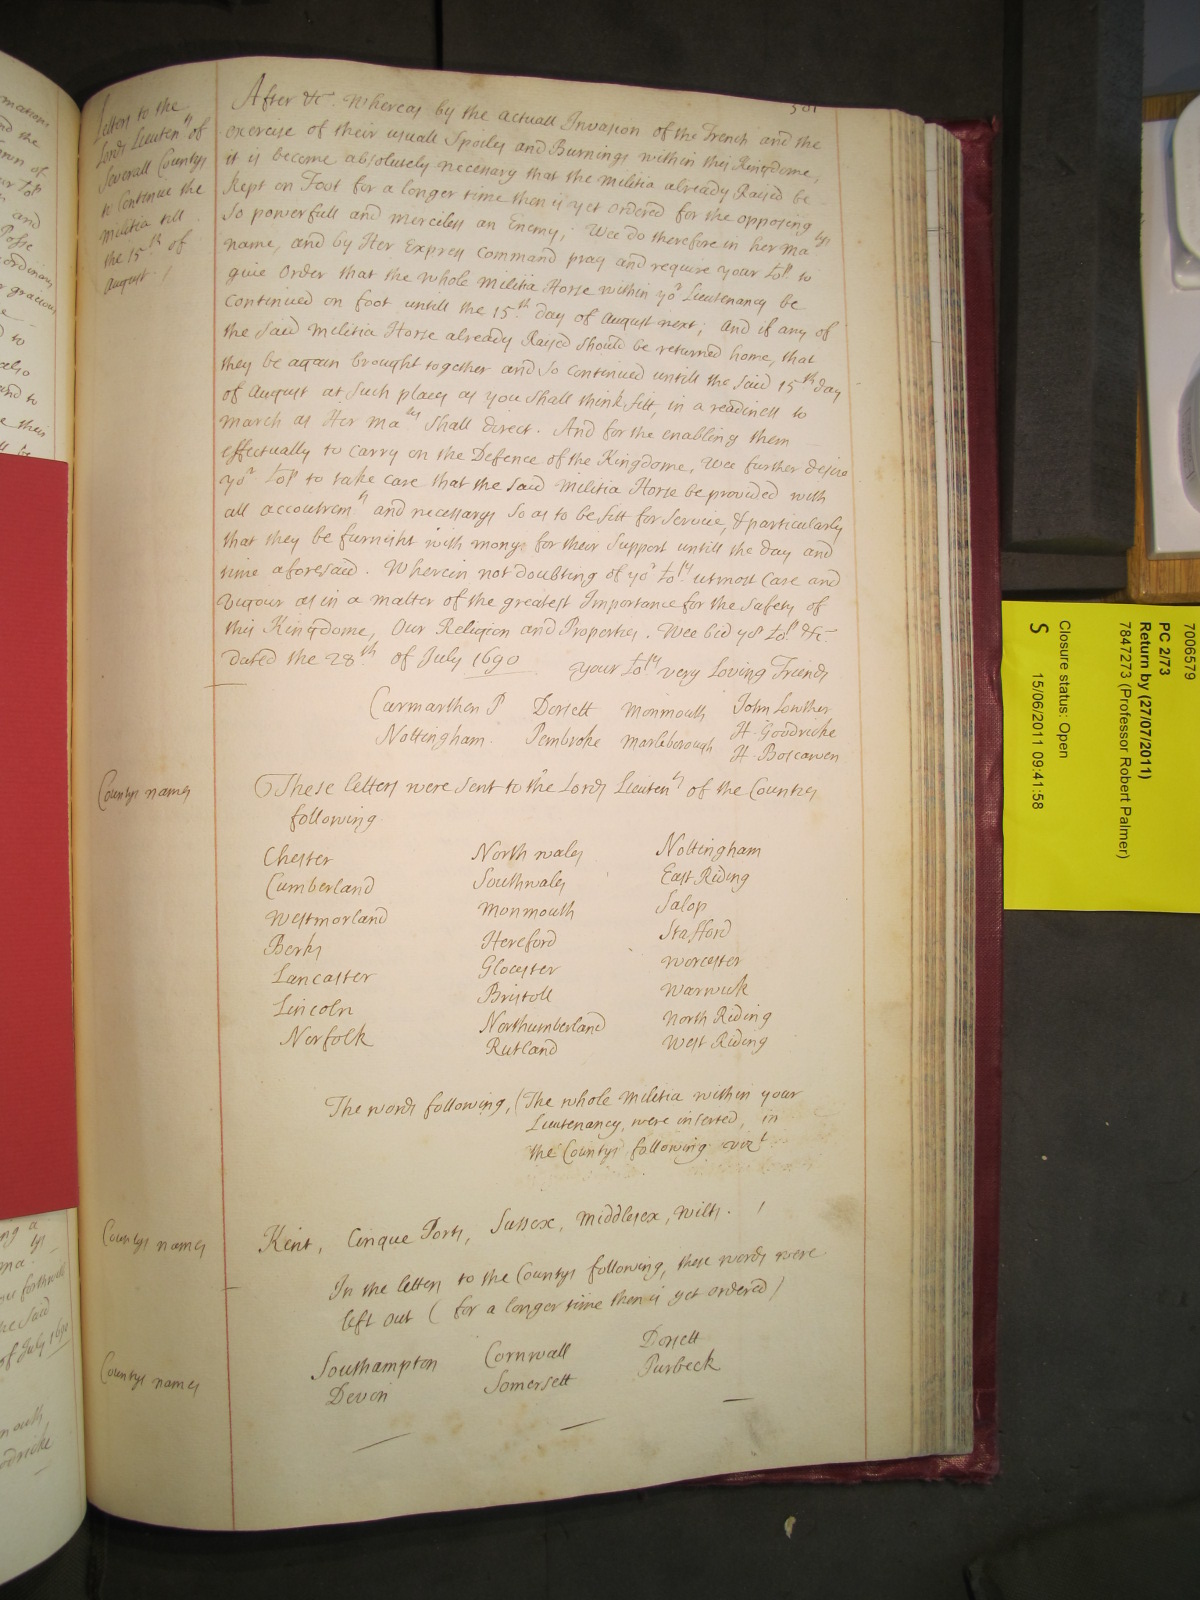 501
Letters to the
Lords Lieuten.ts of
Severall Countys
to Continue the
Militia till
the 15.th of
August
After &c. Whereas by the actuall Invasion of the French and the
exercise of their usuall Spoiles and Burnings within this Kingdome,
it is become absolutely necessary that the Militia already Raised be
Kept on Foot for a longer time then is yet ordered for the opposing
So powerfull and merciless an Enemy, Wee do therefore in her Ma.tys
name, and by Her Express Command pray and require your Lo.p to
give Order that the whole Militia Horse within yo.r Lieutenancy be
Continued on foot untill the 15.th day of August next; And if any of
the Said Militia Horse already Raised should be returned home, that
they be again brought together and so continued untill the Said 15.th day
of August at Such places as you Shall think fitt, in a readiness to
march as Her Ma.ty Shall direct. And for the enabling them
effectually to carry on the Defence of the Kingdome, Wee further desire
yo.r Lo.p to take care that the Said Militia Horse be provided with
all accoutrem.ts and necessarys So as to be fitt for Service, & particularly
that they be furnisht with mony for their Support untill the day and
time aforesaid. Wherein not doubting of yo.r Lo.ps utmost Care and
Vigour as in a matter of the greatest Importance for the Safety of
this Kingdome, Our Religion and Propertys. Wee bid yo.r Lo.p &c.
dated the 28.th of July 1690 your Lo.ps very Loving Friends
Carmarthen P Dorsett Monmouth John Lowther
Nottingham. Pembroke Marleborough H. Goodricke
H. Boscawen
Countys names
These letters were Sent to the Lords Lieuten.ts of the Countys
following.
Chester North wales Nottingham
Cumberland Southwales East Riding
Westmorland Monmouth Salop
Berks Hereford Stafford
Lancaster Glocester Worcester
Lincoln Bristoll Warwick
Norfolk Northumberland North Riding
Rutland West Riding
The words following, (The whole Militia within your
Lieutenancy, were inserted, in
the Countys following viz.t
Countys names
Kent, Cinque Ports, Sussex, Middlesex, Wilts.
In the letters to the Countys following, these words were
left out (for a longer time then is yet ordered)
Countys names
Southampton Cornwall Dorsett
Devon Somersett Purbeck
7006579
PC 2/73
Return by (27/07/2011)
7847273 (Professor Robert Palmer)
Closure status: Open
S 15/06/2011 09:41:58